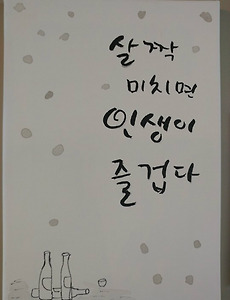 살짝
미치면
인생이
즐겁다